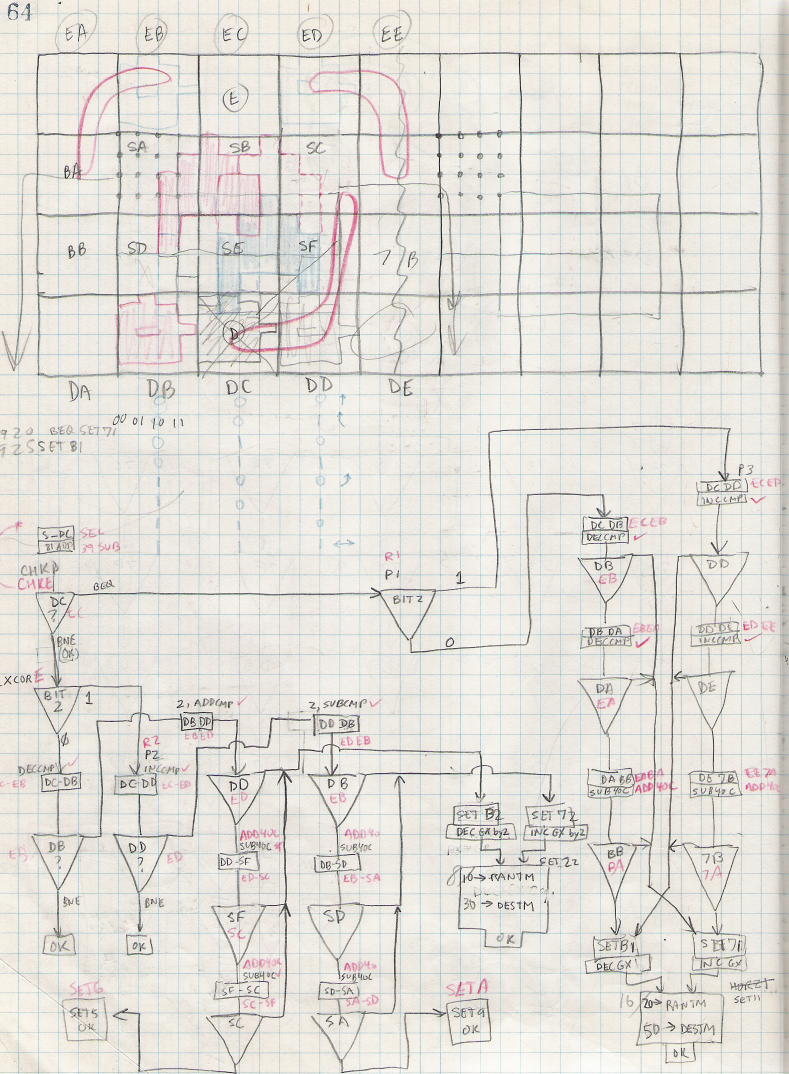 64
EA EB EC ED EE
E
SA SB SC
BA
BB SD SE SF 7 B
D
DA DB DC DD DE
00 01 10 11
920 BEQ SET71
925 SET B1
P3
DC DD ECED
INCCMP ✓
S-DC SEL
81 ADD 39 SUB
DC DB ECEB
DECCMP ✓
CHKD
CHKE
R1
P1
BEQ
DC
?
EC
BIT 2
1
0
DB
EB
DD
BNE
(OK)
DB DA EBEA
DECCMP ✓
DD DE ED EE
INCCMP ✓
XCORE
BIT
2
1
0
2, ADDCMP ✓
DB DD
EBED
2, SUBCMP ✓
DD DB
ED EB
DA
EA
DE
R2
P2
DECCMP ✓
DC-DB
C-EB
INCCMP ✓
DC-DD
EC-ED
DD
ED
DB
EB
DA BB
SUB40C
ADD40C
DE 7B EE 7A
SUB40C ADD40C
SET B2
DEC GX by2
SET 72
INC GX by2
DB
?
DD
?
ED
ADD40C
SUB40C
DD-SF
ED-SC
ADD40
SUB40C
DB-SD
EB-SA
BB
BA
7B
7A
SET22
10→RANTM
30→DESTM
OK
BNE
BNE
OK
OK
SF
SC
SD
ADD40C
SUB40C
SF-SC
SC-SF
ADD40
SUB40C
SD-SA
SA-SD
SETB1
DEC GX
SET71
INC GX
SET6
SET5
OK
SC
SA
SETA
SET9
OK
HORZ1
SET11
16
20→RANTM
50→DESTM
OK